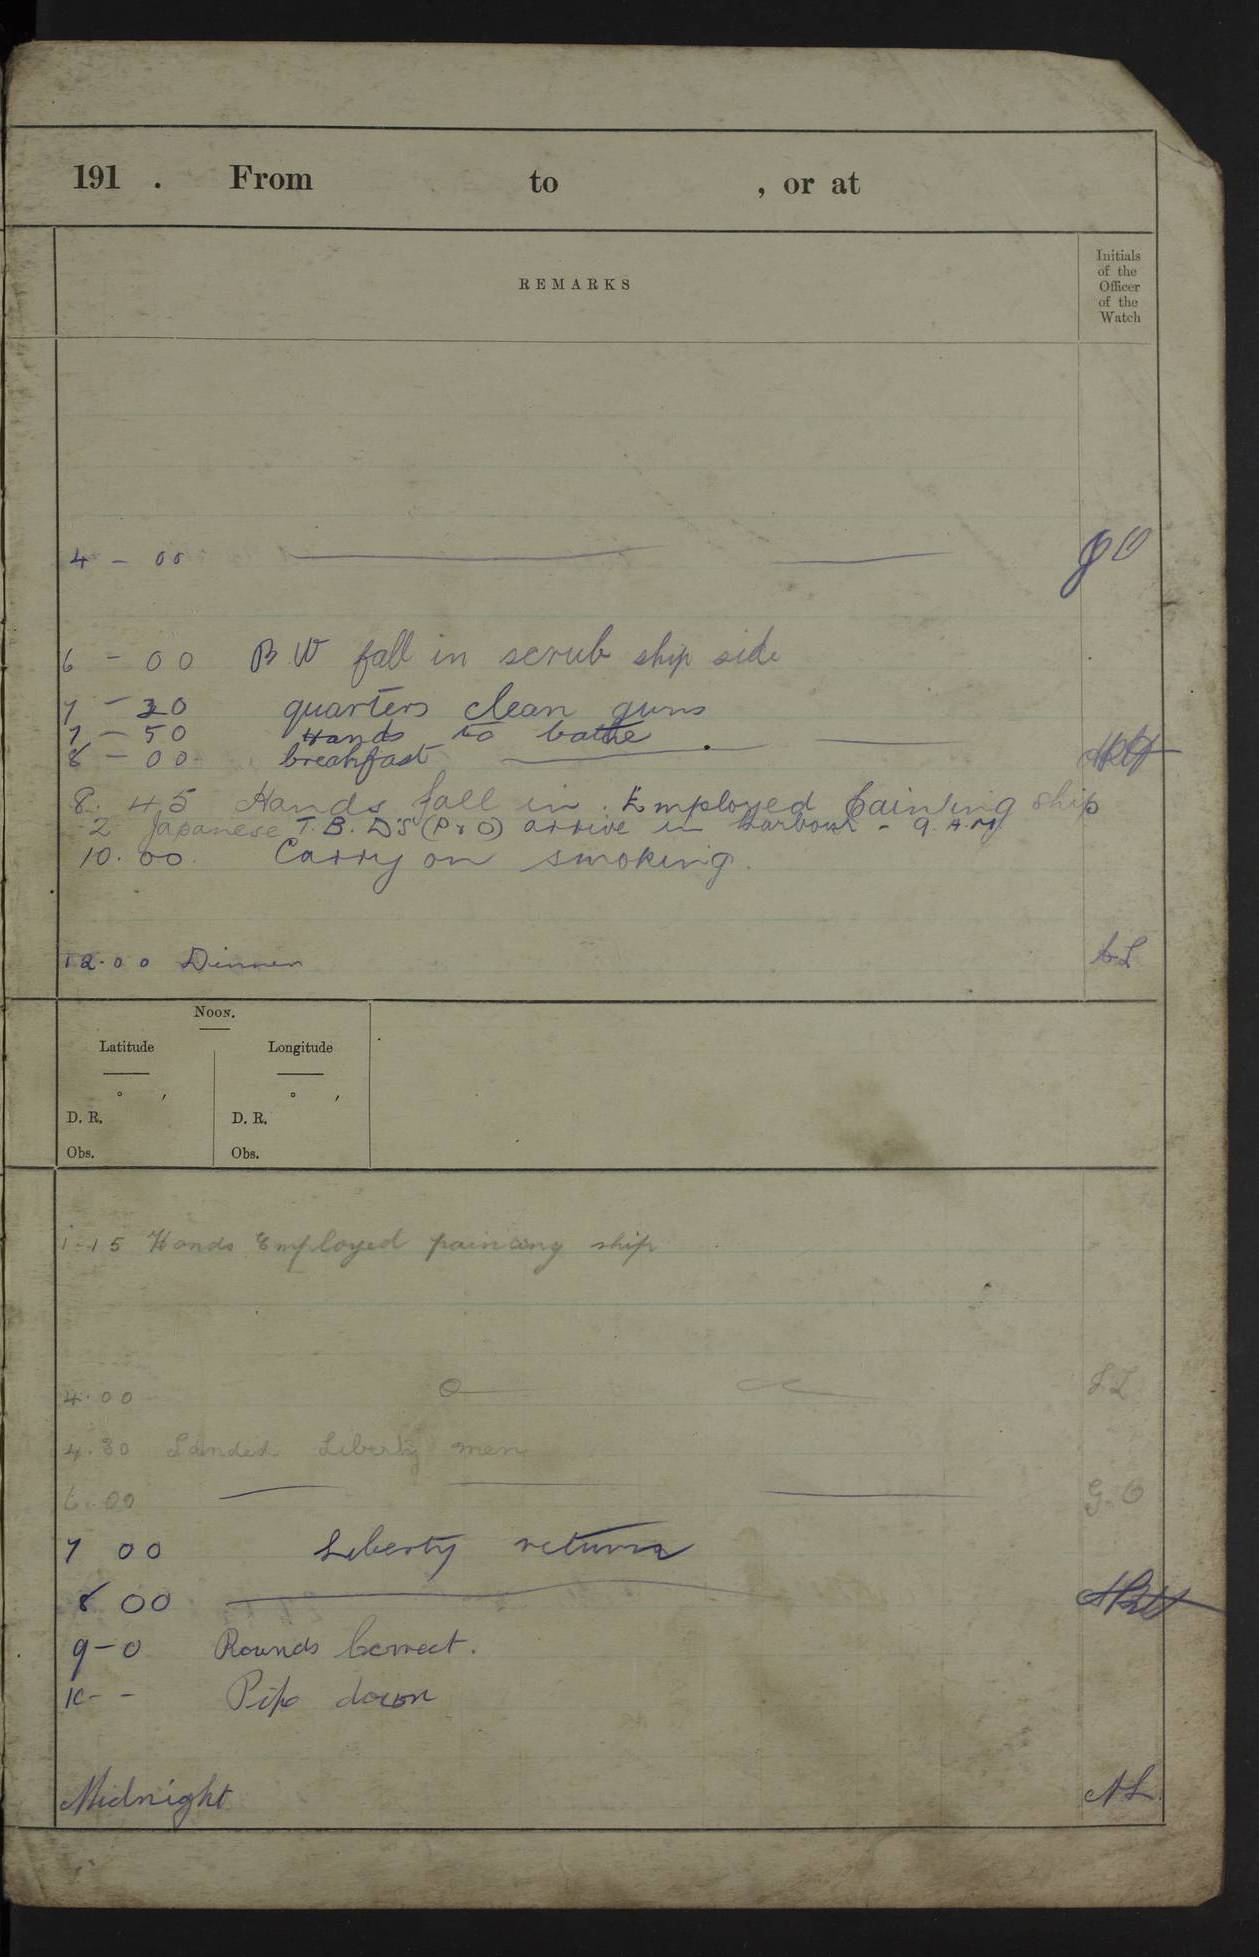 191 . From to , or at
REMARKS
Initials
of the
Officer
of the
Watch
4 - 00
6 - 00 B. W fall in scrub ship side
7 - 30 quarters clean guns
7 - 50 Hands to bathe
8 - 00 breakfast
8. 45 Hands fall in. Employed Painting ship
2 Japanese T. B. D'S (P & O) arrive in Harbour - 9. A.M
10. 00 Carry on smoking.
12.00 Dinner
NOON.
Latitude Longitude
° ′ ° ′
D. R. D. R.
Obs. Obs.
1-15 Hands Employed painting ship
4.00
4.30 Landed Liberty men
6.00 G. O
7 00 Liberty returns
8 00
9-0 Rounds Correct.
10 - - Pipe down
Midnight A L